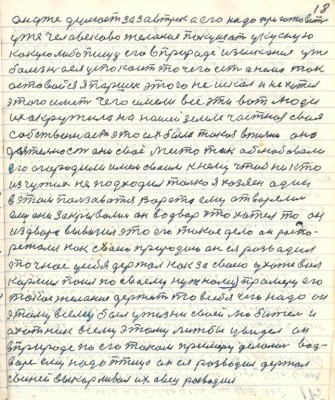 18
он уже думает за завтрак а его надо приготовить
уже человеково желание покушать укусную
какую либо пищу его в природе изыскания уже
болизнаея упокоит то чего есть а нам так
оставайся Паршек этого не искал и не хотел
этого иметь чего имели все эти вот люди
их окружила на нашей земле частная своя
собственность это их была такая в жизни она
деятельность оно своё место так обосновала
его огородили имем своим к нему чтоб никто
из чужих не подходил только я хозяин один
в этом пользовался ворота ему отворели
они закрывали он во двор что хотел то он
из двора вывозил это его такое дело он распо
режался как своим природою он ея розводил
точно у себя держал как за своею ухаживал
кармил поил по своему нужному примеру его
такое желание держать то в себя чего надо он
этому всему был у жизни своей любитель и
охотник всему этому лишь бы увидел он
в природе по его такому примеру делалось во д
воре ему надо птицю он ея розводил держал
свиней выкармливал их овец розводил